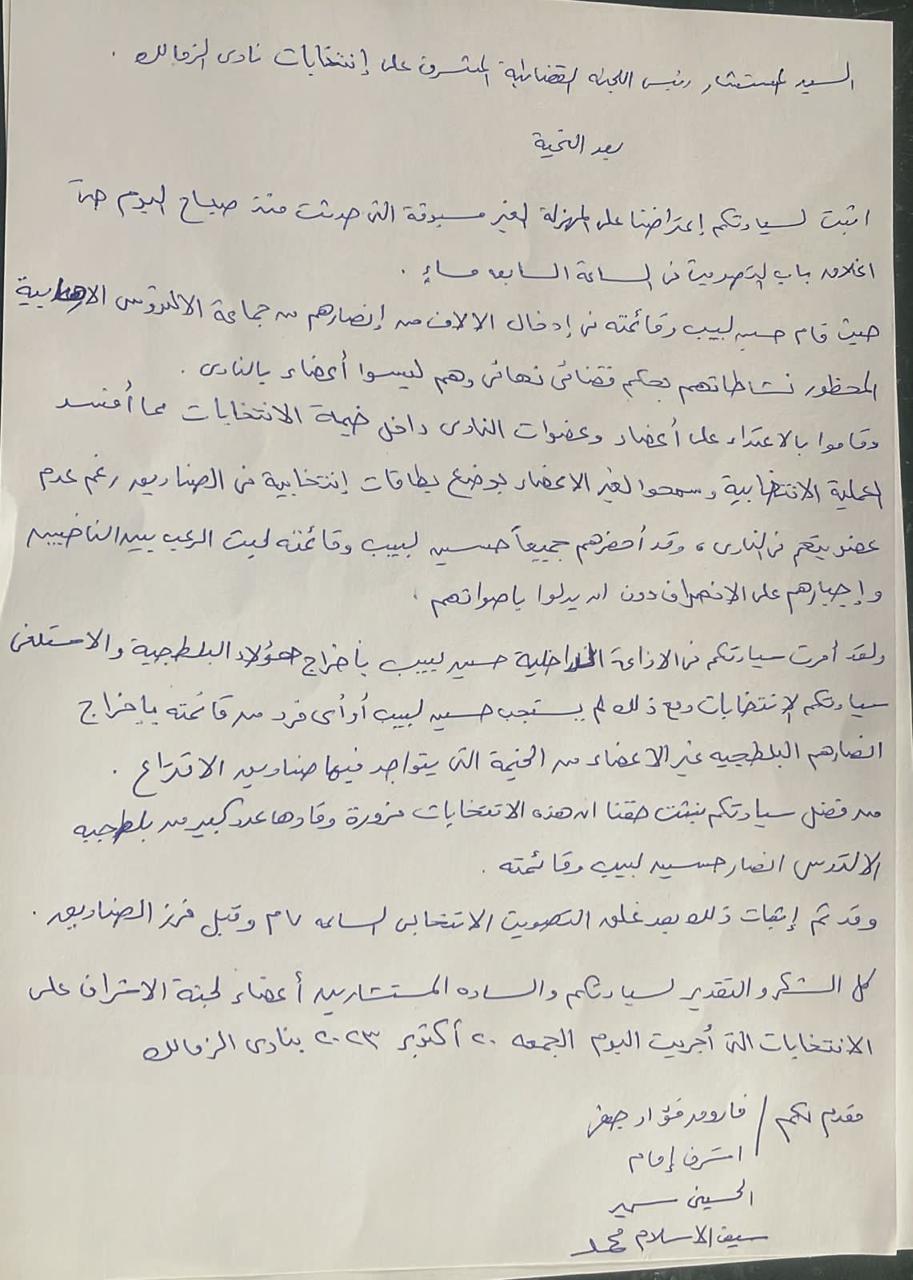 السيد المستشار رئيس اللجنة القضائية المشرف على إنتخابات نادى الزمالك .
بعد التحية
اثبت لسيادتكم إعتراضنا على المهزلة الغير مسبوقة التى حدثت منذ صباح اليوم حتى
اغلاق باب التصويت فى الساعة السابعه مساءً .
حيث قام حسين لبيب وقائمته فى إدخال الالاف من إنصارهم من جماعة الالتروس الارهابية
المحظور نشاطاتهم بحكم قضائى نهائى وهم ليسوا أعضاء بالنادى .
وقاموا بالاعتداء على أعضاء وعضوات النادى داخل خيمة الانتخابات مما أفسد
العملية الانتخابية وسمحوا لغير الاعضاء بوضع بطاقات إنتخابية فى الصناديق رغم عدم
عضويتهم فى النادى ، وقد أحضرهم جميعاً حسين لبيب وقائمته لبث الرعب بين الناخبين
وإجبارهم على الانصراف دون ان يدلوا باصواتهم .
ولقد أمرت سيادتكم فى الاذاعة الداخلية حسين لبيب بأخراج هؤلاء البلطجية والا ستلغى
سيادتكم الإنتخابات ومع ذلك لم يستجب حسين لبيب أو أى فرد من قائمته بإخراج
انصارهم البلطجيه غير الاعضاء من الخيمة التى يتواجد فيها صناديق الاقتراع .
من فضل سيادتكم نثبت حقنا ان هذه الانتخابات مزورة وقادها عدد كبير من بلطجيه
الالتروس انصار حسين لبيب وقائمته .
وقد تم إثبات ذلك بعد غلق التصويت الانتخابى لساعه ٧م وقبل فرز الصناديق .
كل الشكر والتقدير لسيادتكم والساده المستشارين أعضاء لجنة الاشراف على
الانتخابات التى أجريت اليوم الجمعه ٢٠ أكتوبر ٢٠٢٣ بنادى الزمالك
مقدم لكم / فاروق فؤاد جعفر
اشرف إمام
الحسينى سمير
سيف الاسلام محمد